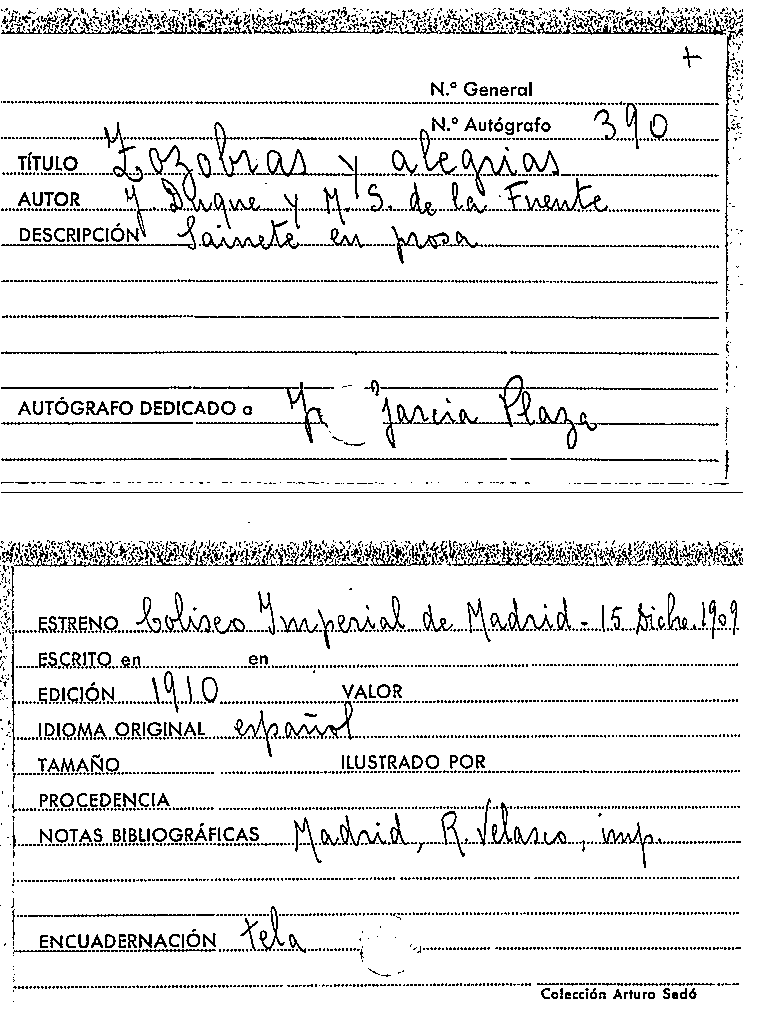 +
N.º General
N.º Autógrafo 390
TÍTULO Zozobras y alegrias
AUTOR J Duque y M. S. de la Fuente
DESCRIPCIÓN Sainete en prosa
AUTÓGRAFO DEDICADO a Garcia Plaza
ESTRENO Coliseo Imperial de Madrid - 15 Dicbre. 1909
ESCRITO en en
EDICIÓN 1910 VALOR
IDIOMA ORIGINAL español
TAMAÑO ILUSTRADO POR
PROCEDENCIA
NOTAS BIBLIOGRÁFICAS Madrid, R. Velasco, imp.
ENCUADERNACIÓN tela
Colección Arturo Sedó